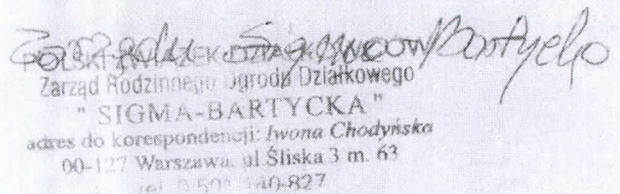 Zarządu Sigma Bartycka
POLSKI ZWIĄZEK DZIAŁKOWCÓW
Zarząd Rodzinnego Ogrodu Działkowego
" SIGMA-BARTYCKA "
adres do korespondencji: Iwona Chodyńska
00-127 Warszawa, ul Śliska 3 m. 63
tel. 0 50 140-827